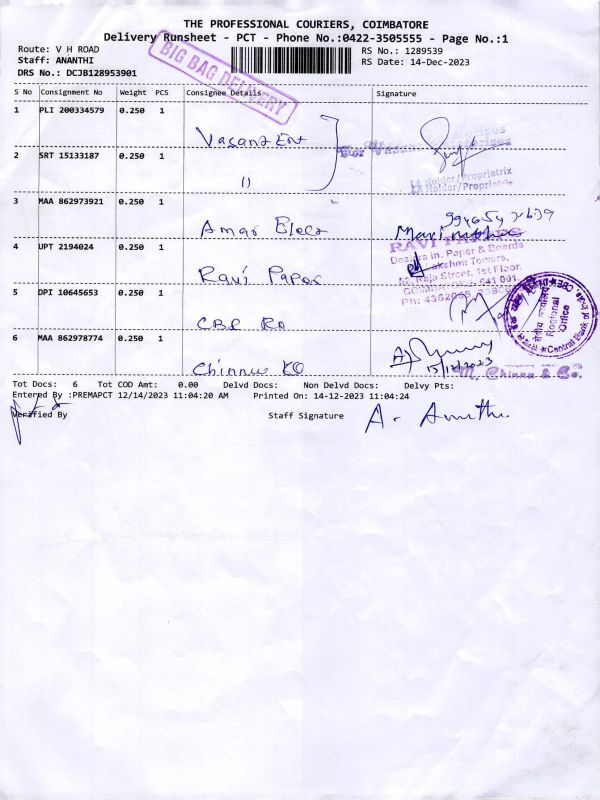 THE PROFESSIONAL COURIERS, COIMBATORE
Delivery Runsheet - PCT - Phone No.:0422-3505555 - Page No.:1
Route: V H ROAD
RS No.: 1289539
Staff: ANANTHI
RS Date: 14-Dec-2023
DRS No.: DCJB128953901
BIG BAG DELIVERY
S No Consignment No Weight PCS Consignee Details Signature
1 PLI 200334579 0.250 1
Vasant Ent
2 SRT 15133187 0.250 1
11
LA Holder/Propriatrix
3 MAA 862973921 0.250 1
Amar Elect
4 UPT 2194024 0.250 1
Ravi Paper
RAVI PAPERS
Dealers in: Paper & Boards
Lakshmi Towers,
Raja Street, 1st Floor,
641 001
5 DPI 10645653 0.250 1
CBI Ro
क्षेत्रीय कार्यालय
Regional
Office
Central Bank of
6 MAA 862978774 0.250 1
Chinnu KO
15/12/2023
M. Chinna & Co.
Tot Docs: 6 Tot COD Amt: 0.00 Delvd Docs: Non Delvd Docs: Delvy Pts:
Entered By :PREMAPCT 12/14/2023 11:04:20 AM Printed On: 14-12-2023 11:04:24
Verified By Staff Signature